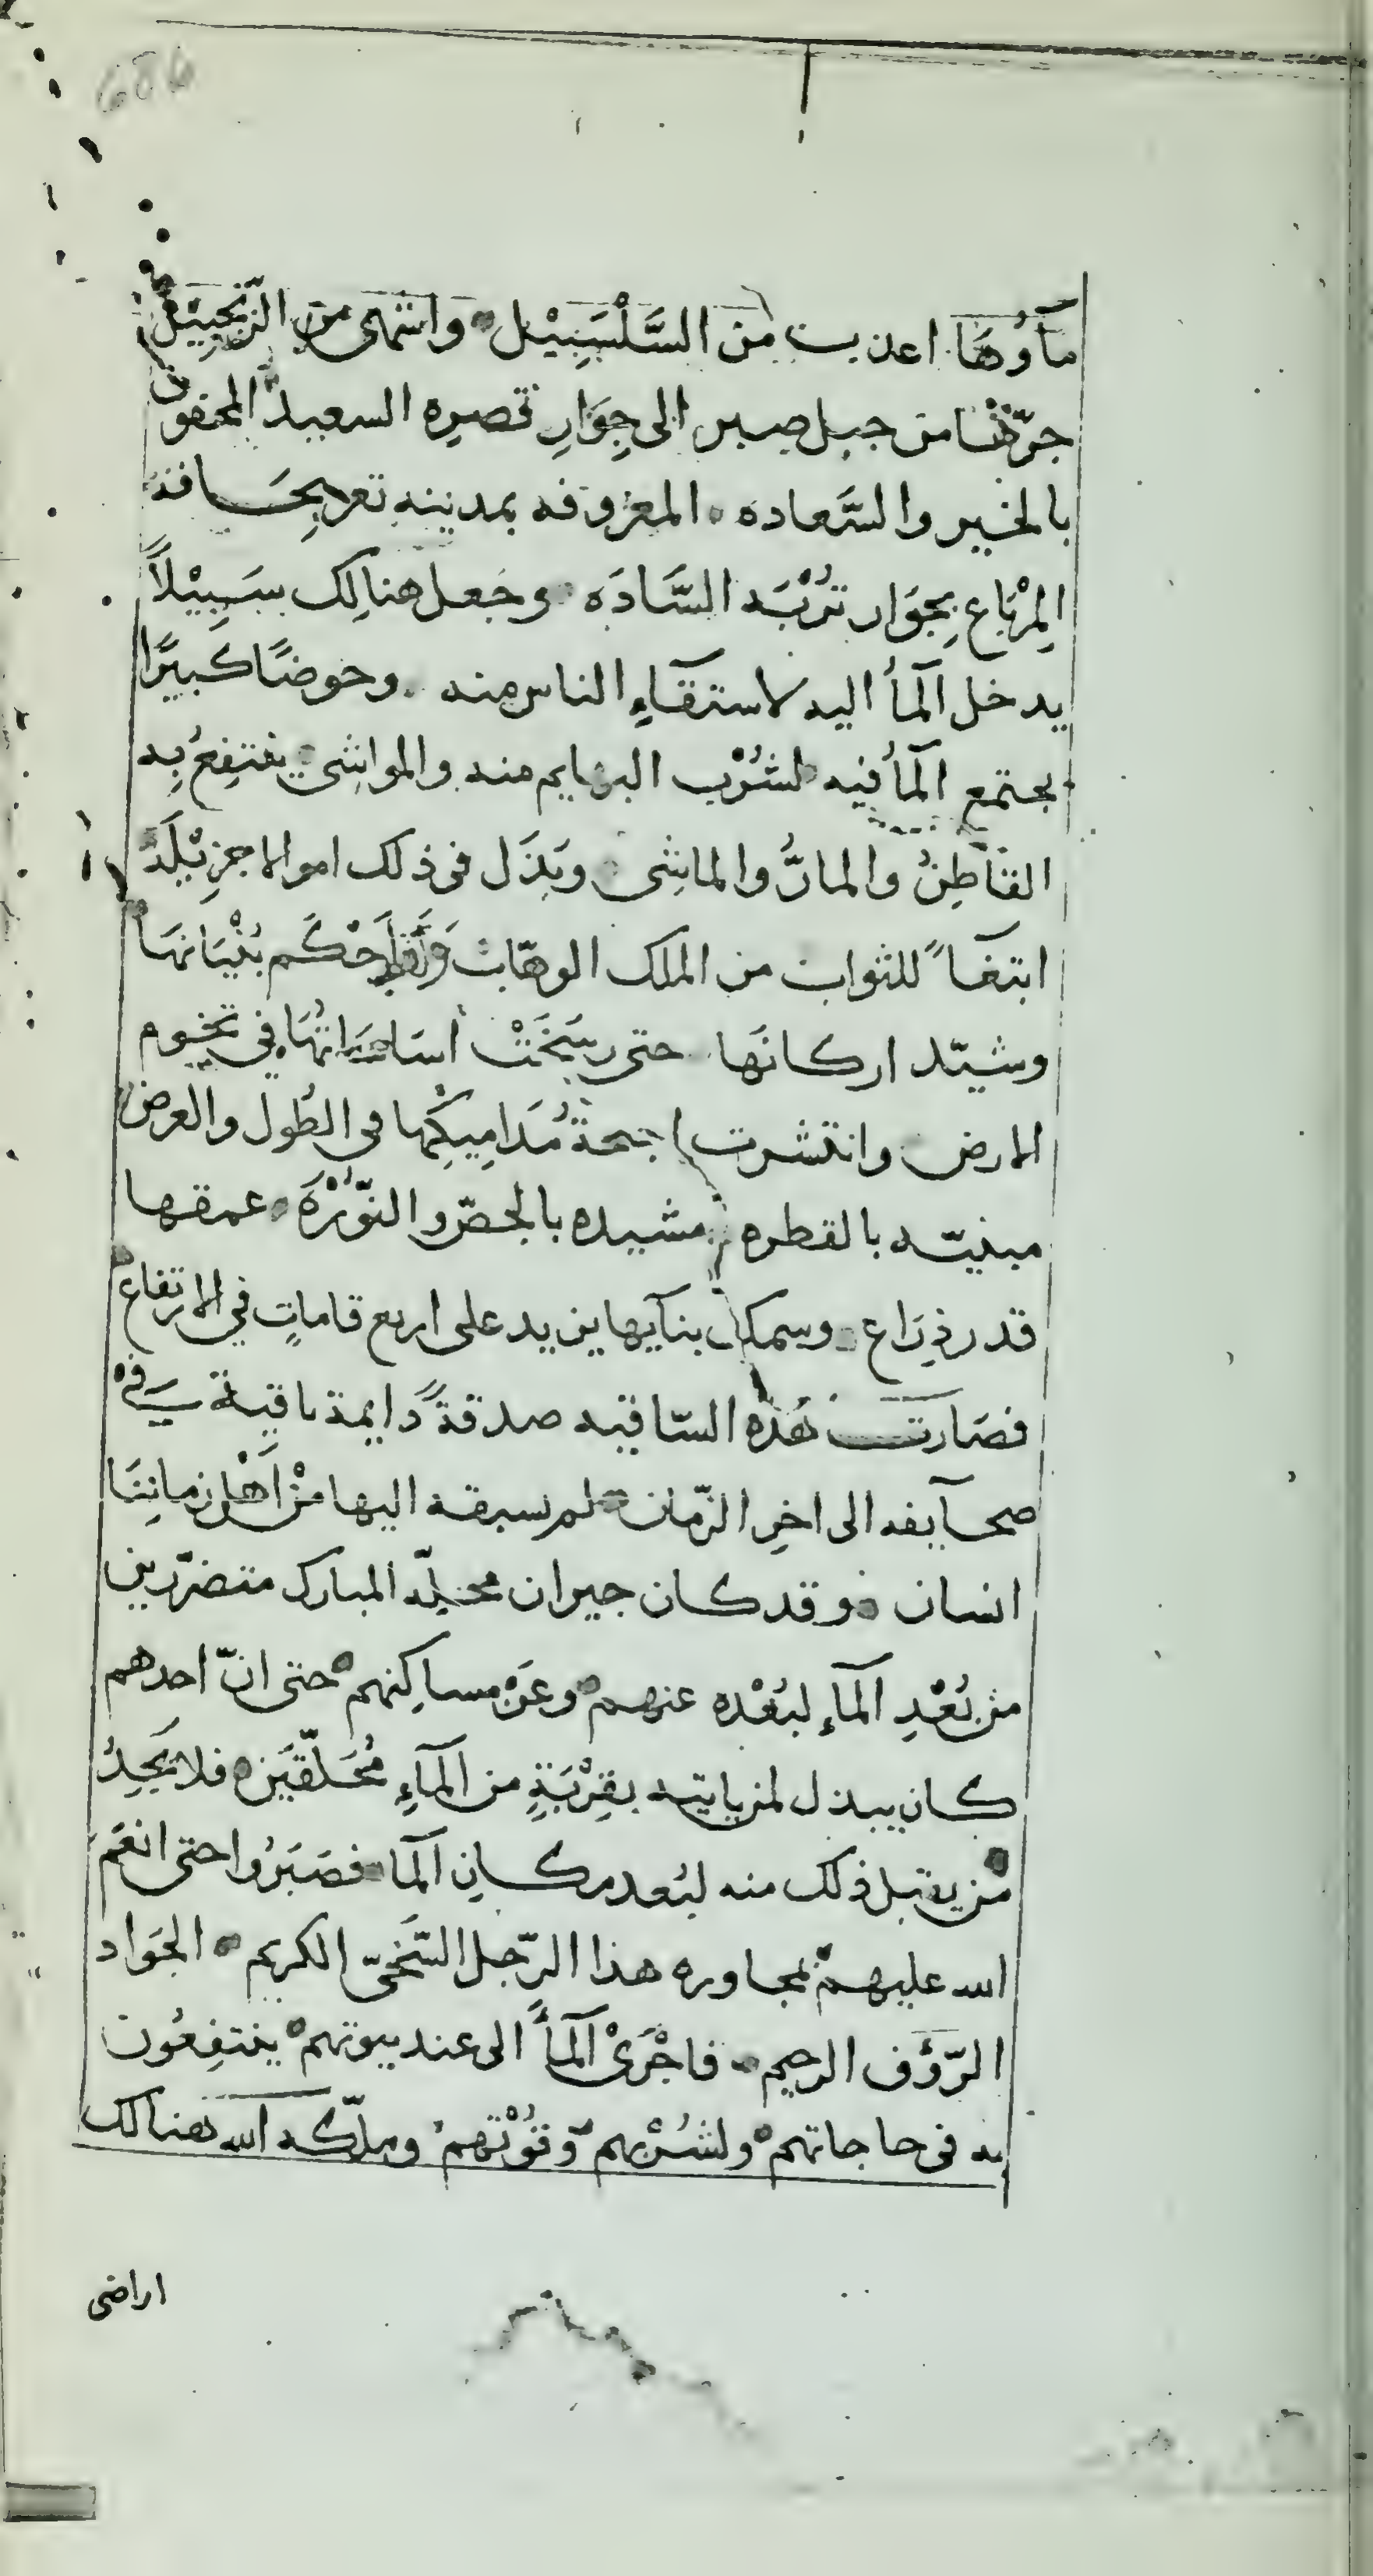 مآؤُهَا اعذب من السَّلْسَبِيْل واشهى من الزّنجبيْل
جرّها من جبل صبر الى جِوَارِ قصرِه السعيد المحفوف
بالخير والسَّعاده المعروفه بمدينه تعز بحَافة
المِرْبَاع بِجوَار تُرْبَه السَّادَه وجَعل هنالِك سَبِيْلاً
يدخل المآُ اليه لاستقآءِ الناس منه وحوضًا كبيرًا
يجتمع المآُ فيه لشُرْب البهايم منه والمواشِى ينتفِعُ بِه
القَاطِنُ والمارُّ والماشِى وبَذَل فى ذلك اموالا جزيْلَه
ابتغآً للثواب من الملك الوهّاب واحْكَم بُنْيَانهَا
وشيّد اركانَها حتى رسَخَتْ أساساتُهَا فِى تخوم
الارض وانتشرت اجنحة مَدَامِيكِها فى الطُول والعرض
مبنيّه بالقطره مشيده بالجصّ والنّوْرَة عمقها
قدر ذِرَاع وسمك بنآيها يزيد على اربع قاماتٍ فِي الارتفاع
فصَارت هَذه السّاقيه صدقةً دايمة باقية في
صحآيفه الى اخرِ الزّمان لم يسبقه اليها مِنْ اَهْل زمانِنَا
انسان وقد كان جيران محلّه المبارك متضرّرين
من بُعْدِ المآءِ لبُعْده عنهم وعَنْ مساكِنهم حتى انّ احدهم
كان يبذل لمن ياتيه بقِرْبَةٍ من المآءِ مُحَلّقَيْن فلا يَجِدُ
مَن يقبل ذلك منه لبُعد مكانِ المآ فصَبَرُوا حتى انعَم
الله عليهم بمجاوره هذا الرّجل السّخىّ الكريم الجَواد
الرّؤف الرحيم فاجْرَىْ المآَ الى عند بيوتهم ينتفِعُون
به فى حاجاتهم ولشُرْبهم وقُوْتهم وملّكه الله هنالك
اراضى